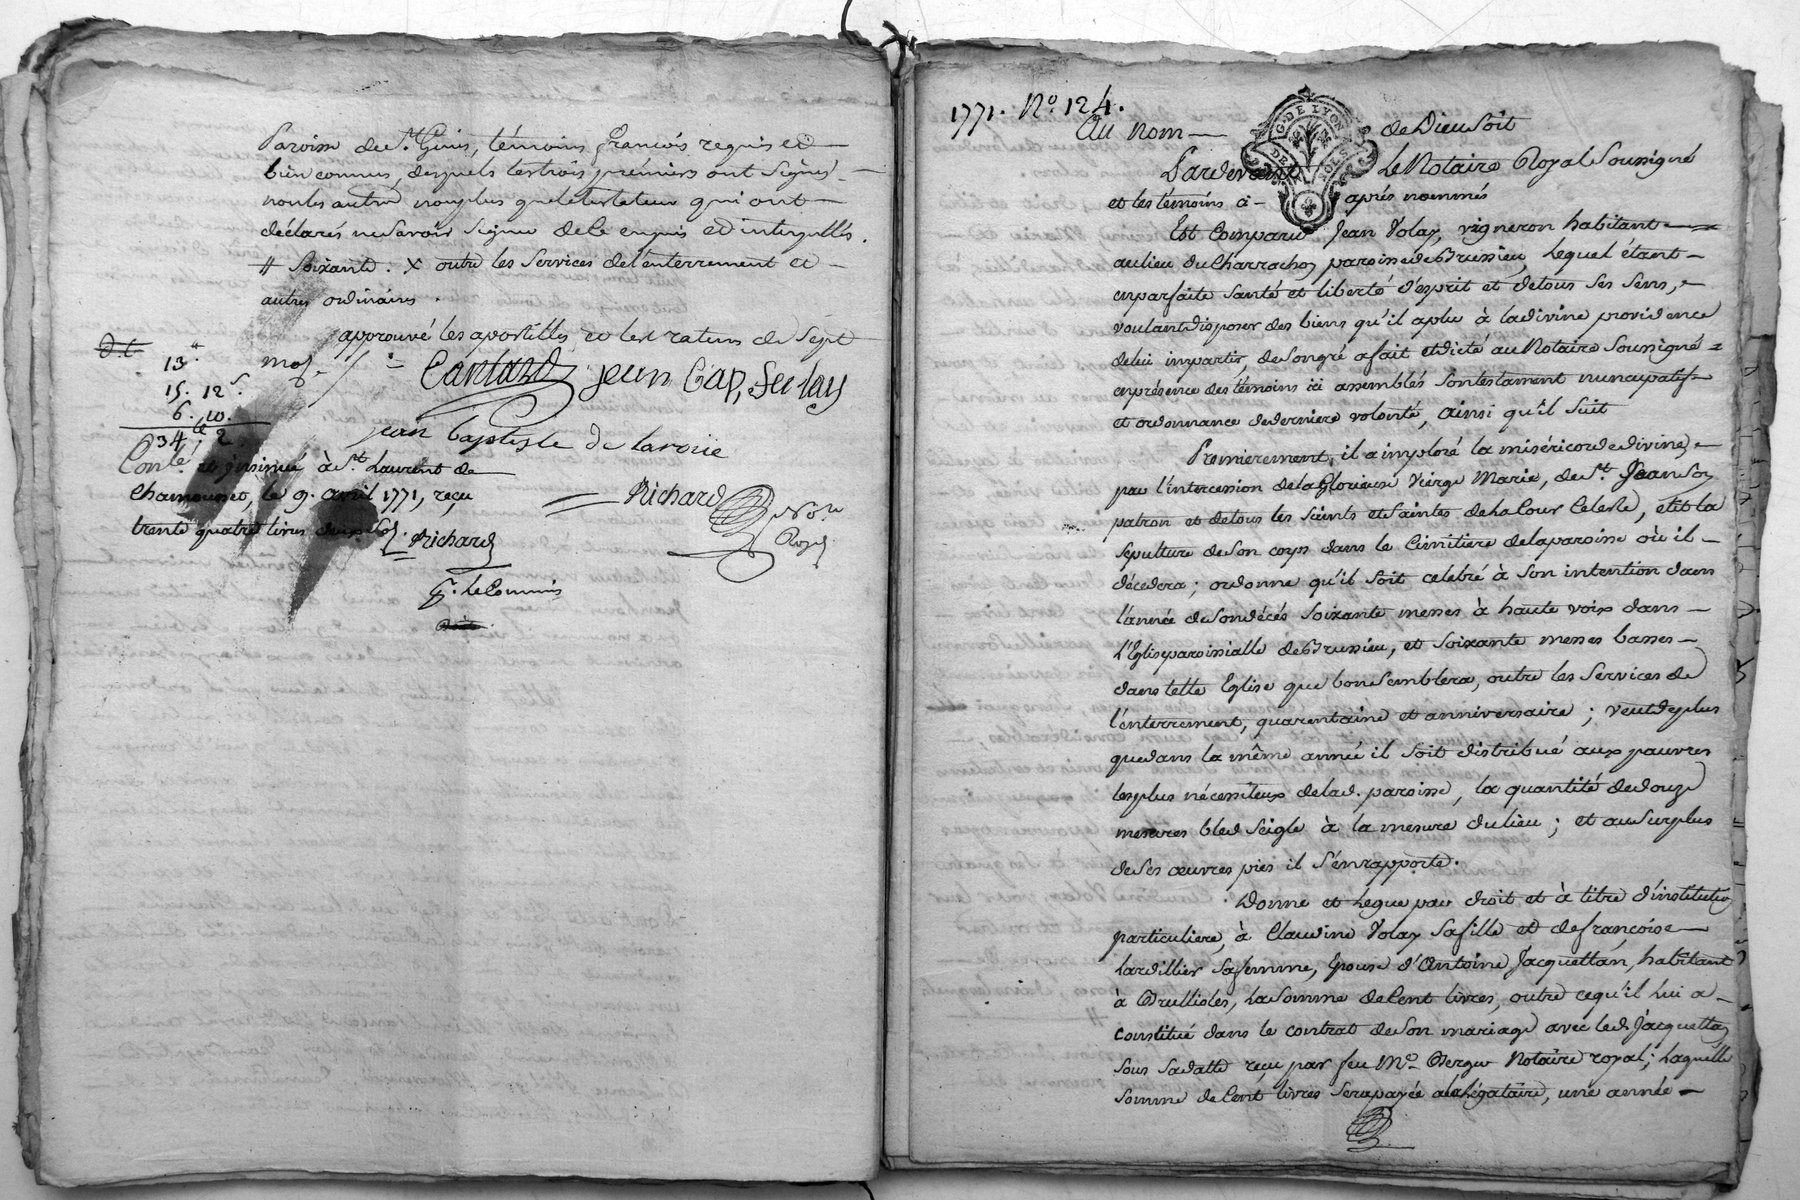 Paroisse de St. Genis, témoins françois requis et
bien connus, desquels les trois prémiers ont signés
non les autres non plus que le testateur qui ont
déclarés ne savoir signer de ce enquis et interpellés.
# Soixante. x outre les services de l'enterrement et
autres ordinaires.
approuvé les apostilles et les ratures de sept
mos.
Jean Cap,
jean baptiste de laroüe
Richard
Nore
Royal
d. t.
13 "
15. 12 s.
6. 10.
34 tt 2
Conlé. et insinué à St. Laurent de
Chamousset, le 9. avril 1771, reçu
trente quatre livres deux sols
Richard
p. le Commis
1771. No. 124.
Au nom de Dieu soit
G. DE LYON
DE
SOLS
Pardevant Le Notaire Royal Soussigné
et les témoins ci- après nommés
Est Comparu Jean Volay, vigneron habitant
au lieu du Charrachon paroisse de Brussieu, Lequel étant
en parfaite santé et liberté d'esprit et de tous ses sens,
voulant disposer des biens qu'il a plu à la divine providence
de lui impartir, de son gré a fait et dicté au Notaire soussigné
en présence des témoins ici assemblés son testament nuncupatif
et ordonnance de derniere volonté, ainsi qu'il suit
Premierement, il a imploré la miséricorde divine,
par l'intercession de la Glorieuse Vierge Marie, de St. Jean son
patron et de tous les saints et saintes de la Cour Celeste, élit la
sépulture de son corps dans le Cimitiere de la paroisse où il
décédera; ordonne qu'il soit celebré à son intention dans
l'année de son décés soixante messes à haute voix dans
L'Eglise paroissialle de Brussieu, et soixante messes basses
dans telle Eglise que bon semblera, outre les services de
l'enterrement, quarentaine et anniversaire; veut de plus
que dans la même année il soit distribué aux pauvres
les plus nécessiteux de lad. paroisse, la quantité de douze
mesures bled seigle à la mesure du lieu; et au surplus
de ses œuvres pies il s'en rapporte.
Donne et Legue par droit et à titre d'institution
particuliere, à Claudine Volay sa fille et de françoise
Lardillier sa femme, Epouse d'Antoine Jacquettan, habitant
à Brullioles, La somme de Cent livres, outre ce qu'il lui a
constitué dans le contrat de son mariage avec led. Jacquettan
sous sa datte reçu par feu Me. Berger Notaire royal; Laquelle
somme de Cent livres sera payée à la légataire, une année